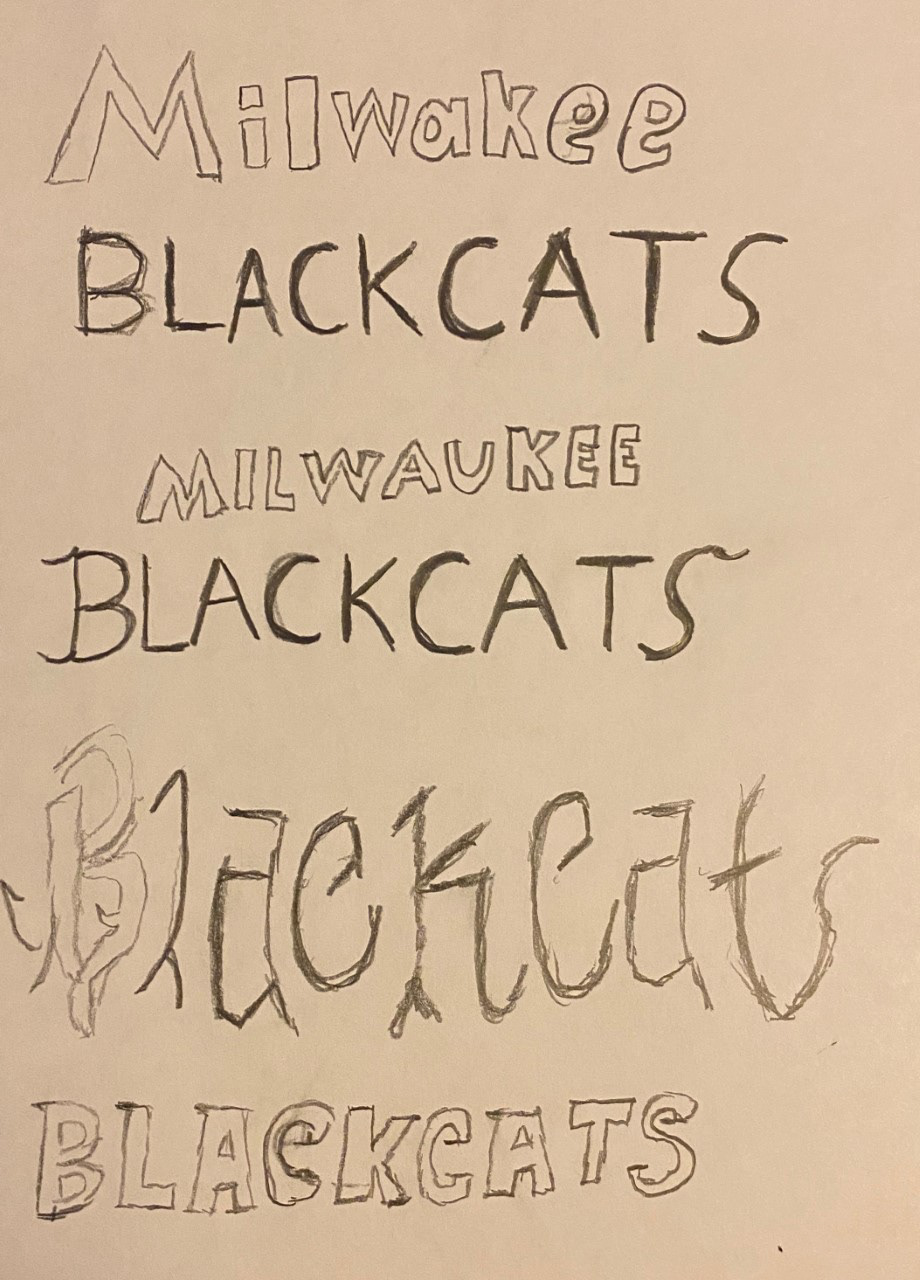 Milwakee
BLACKCATS
MILWAUKEE
BLACKCATS
Blackcats
BLACKCATS